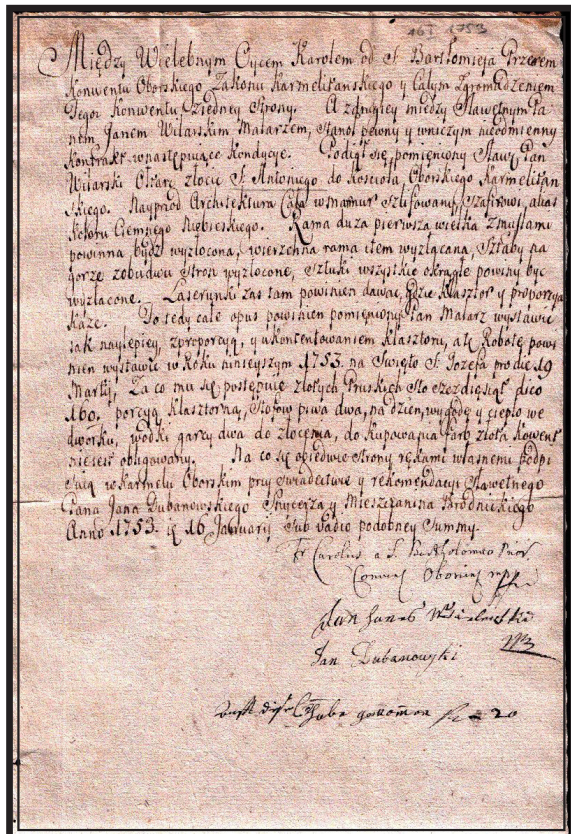 16 I 1753
Między Wielebnym Oycem Karolem od S. Bartłomieja Przeorem
Konwentu Oborskiego Zakonu Karmelitanskiego y Całym Zgromadzeniem
Tegoż Konwentu, z iedney strony. A z drugiey między Sławetnym Pa-
nem Janem Witarskim Malarzem, stanoł pewny y wniczym nieodmienny
Kontrakt w następuiące Kondycye. Podiął się pomieniony Sław: Pan
Witarski Ołtarz złocic S. Antoniego do Kościoła Oborskiego Karmelitan
skiego. Nayprzód Architektura Cała w marmur szlifowany, szafirowi, alias
Koloru Ciemnego Niebieskiego. Rama duża pierwsza wielka z
powinna bydź wyzłocona, wierzchna rama item wyzłacana, Sztaby na
gorze z obudwu stron wyzłocone, sztuki wszystkie okrągłe powinny byc
wyzłacone. Laserynki zas tam powinien dawac, gdzie klasztor y proporcya
każe. To tedy całe opus powinien pomieniony Pan Malarz wystawic
iak naylepiey, z proporcyą, y ukontentowaniem klasztoru, a tę Robotę powi
nien wystawic w Roku ninieyszym 1753. na Swięto S. Jozefa pro die 19
Martij, Za co mu się postępuie złotych Pruskich sto szezdziesiąt dico
160, porcyą klasztorną, stofow piwa dwa, na dzien, wygodę y ciepło we
dworku, wodki garcy dwa do złocenia, do kupowania farb złota Kowent
niesiest obligowany. Na co się obiedwie strony rękami własnemi Podpi
suią w Karmelu Oborskim przy swiadectwie y rekomendacyi Sławetnego
Pana Jana Dubanowskiego Snycerza y Mieszczanina Brodnickiego
Anno 1753. ię 16 Januarij sub vadio podobney Summy.
Fr Carolus a S. Bartholomeo Prior
Conven Oborien mpp
Jan
Jan Dubanowski
20